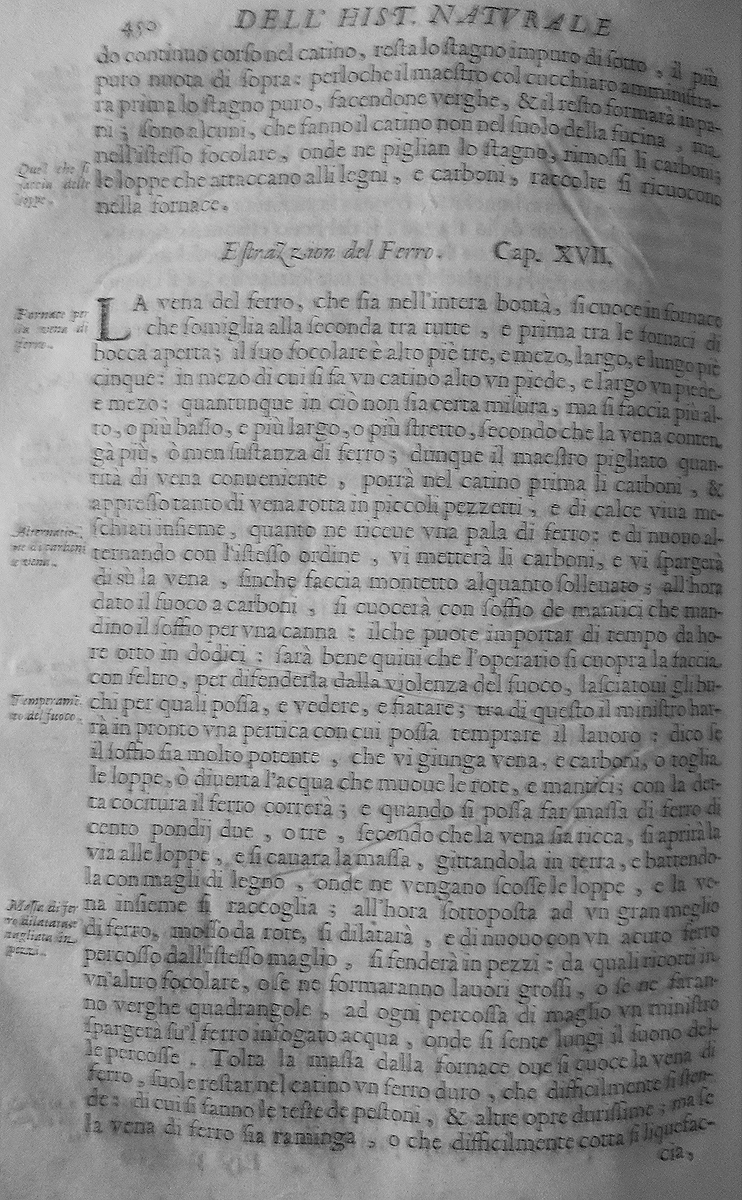 450 DELL' HIST. NATVRALE
do continuo corso nel catino, resta lo stagno impuro di sotto, il più
puro nuota di sopra: perloche il maestro col cucchiaro amministra-
rà prima lo stagno puro, facendone verghe, & il resto formarà in pa-
ni; sono alcuni, che fanno il catino non nel suolo della fucina, ma
nell'istesso focolare, onde ne piglian lo stagno, rimossi li carboni;
Quel che si
faccia delle
loppe.
le loppe che attaccano alli legni, e carboni, raccolte si ricuocono
nella fornace.
Estrazzion del Ferro. Cap. XVII.
Fornace per
la vena di
ferro.
LA vena del ferro, che sia nell'intera bontà, si cuoce in fornace
che somiglia alla seconda tra tutte, e prima tra le fornaci di
bocca aperta; il suo focolare è alto piè tre, e mezo, largo, e lungo piè
cinque: in mezo di cui si fa vn catino alto vn piede, e largo vn piede
e mezo: quantunque in ciò non sia certa misura, ma si faccia più al-
to, o più basso, e più largo, o più stretto, secondo che la vena conten
gà più, ò men sustanza di ferro; dunque il maestro pigliato quan-
tità di vena conueniente, porrà nel catino prima li carboni, &
appresso tanto di vena rotta in piccoli pezzetti, e di calce viua me-
schiati insieme, quanto ne riceue vna pala di ferro: e di nuouo al-
Alternatio-
ne di carboni
e vena.
ternando con l'istesso ordine, vi metterà li carboni, e vi spargerà
di sù la vena, finche faccia montetto alquanto solleuato; all'hora
dato il fuoco a carboni, si cuocerà con soffio de mantici che man-
dino il soffio per vna canna: ilche puote importar di tempo da ho-
re otto in dodici: sarà bene quiui che l'operario si cuopra la faccia
con feltro, per difenderla dalla violenza del fuoco, lasciatoui gli bu-
Temperamē.
to del fuoco.
chi per quali possa, e vedere, e fiatare; tra di questo il ministro har-
rà in pronto vna pertica con cui possa temprare il lauoro: dico se
il soffio sia molto potente, che vi giunga vena, e carboni, o toglia
le loppe, ò diuerta l'acqua che muoue le rote, e mantici; con la det-
ta cocitura il ferro correrà; e quando si possa far massa di ferro di
cento pondij due, o tre, secondo che la vena sia ricca, si aprirà la
via alle loppe, e si cauara la massa, gittandola in terra, e battendo-
la con magli di legno, onde ne vengano scosse le loppe, e la ve-
Massa di fer
ro dilatata, e
tagliata in
pezzi.
na insieme si raccoglia; all'hora sottoposta ad vn gran meglio
di ferro, mosso da rote, si dilatarà, e di nuouo con vn acuto ferro
percosso dall'istesso maglio, si fenderà in pezzi: da quali ricotti in
vn'altro focolare, o se ne formaranno lauori grossi, o se ne faran-
no verghe quadrangole, ad ogni percossa di maglio vn ministro
spargerà su'l ferro infogato acqua, onde si sente lungi il suono del-
le percosse. Tolta la massa dalla fornace oue si cuoce la vena di
ferro, suole restar nel catino vn ferro duro, che difficilmente si sten-
de: di cui si fanno le teste de pestoni, & altre opre durissime; ma se
la vena di ferro sia raminga, o che difficilmente cotta si liquefac-
cia,